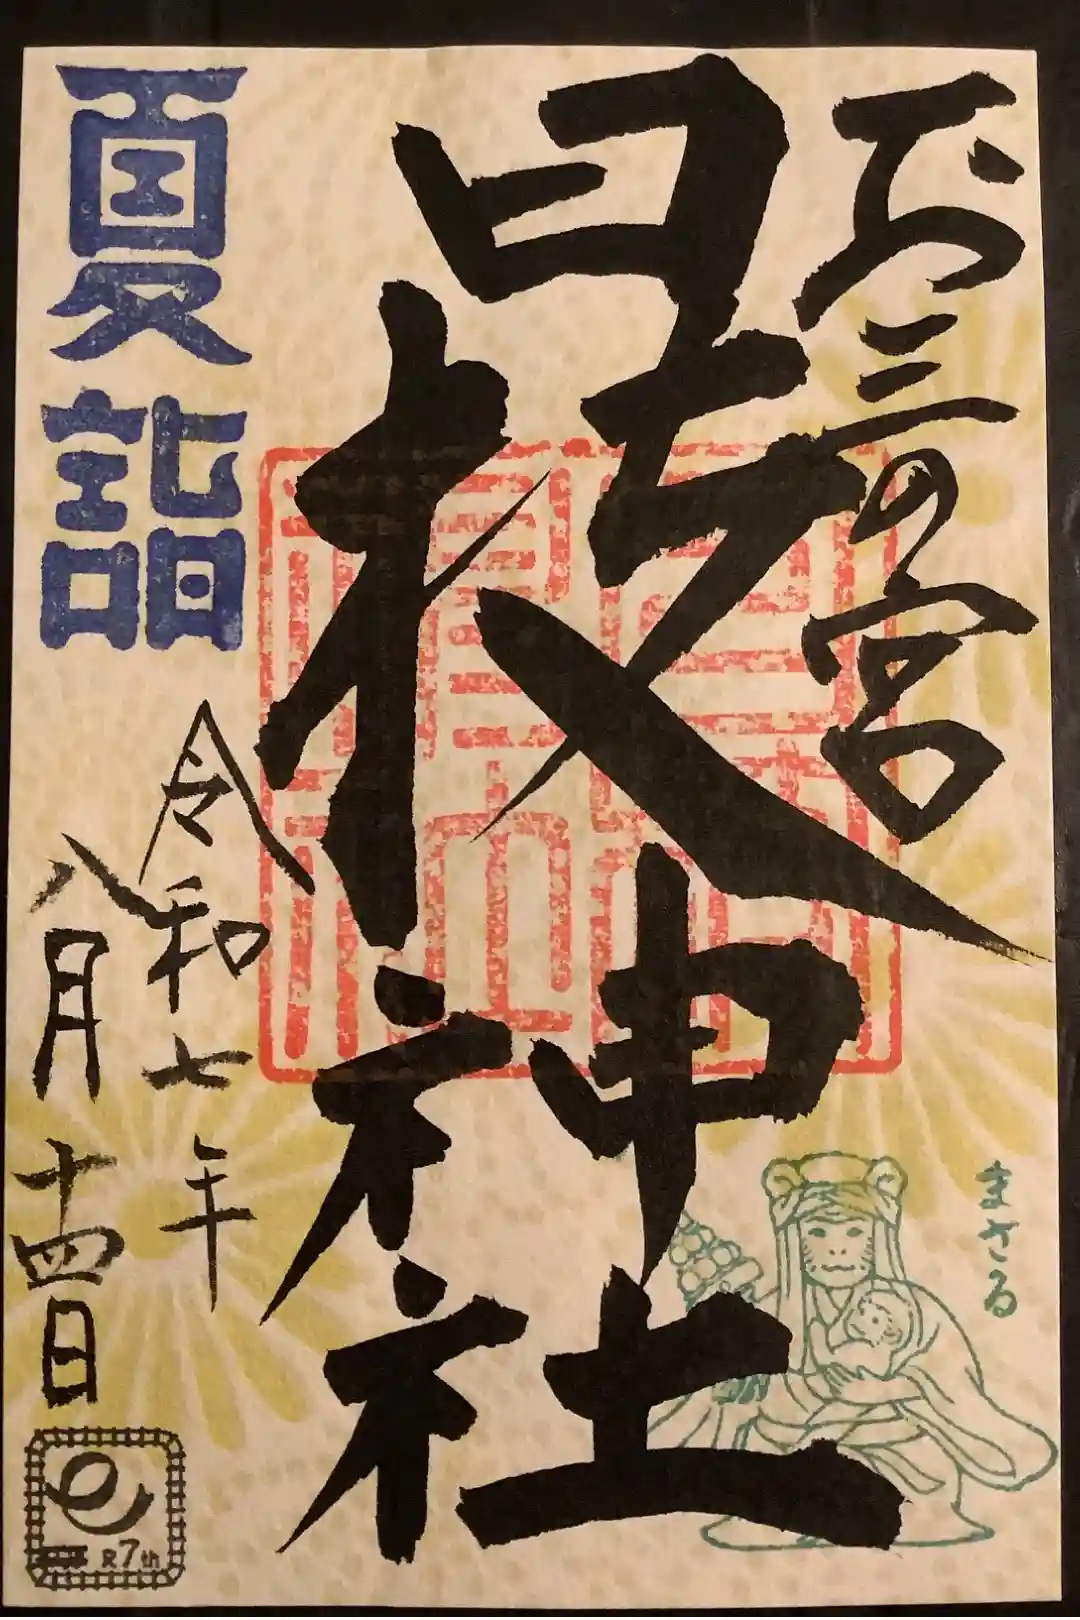 お三の宮
日枝神社
まさる
夏詣
令和七年
八月十四日
R7th